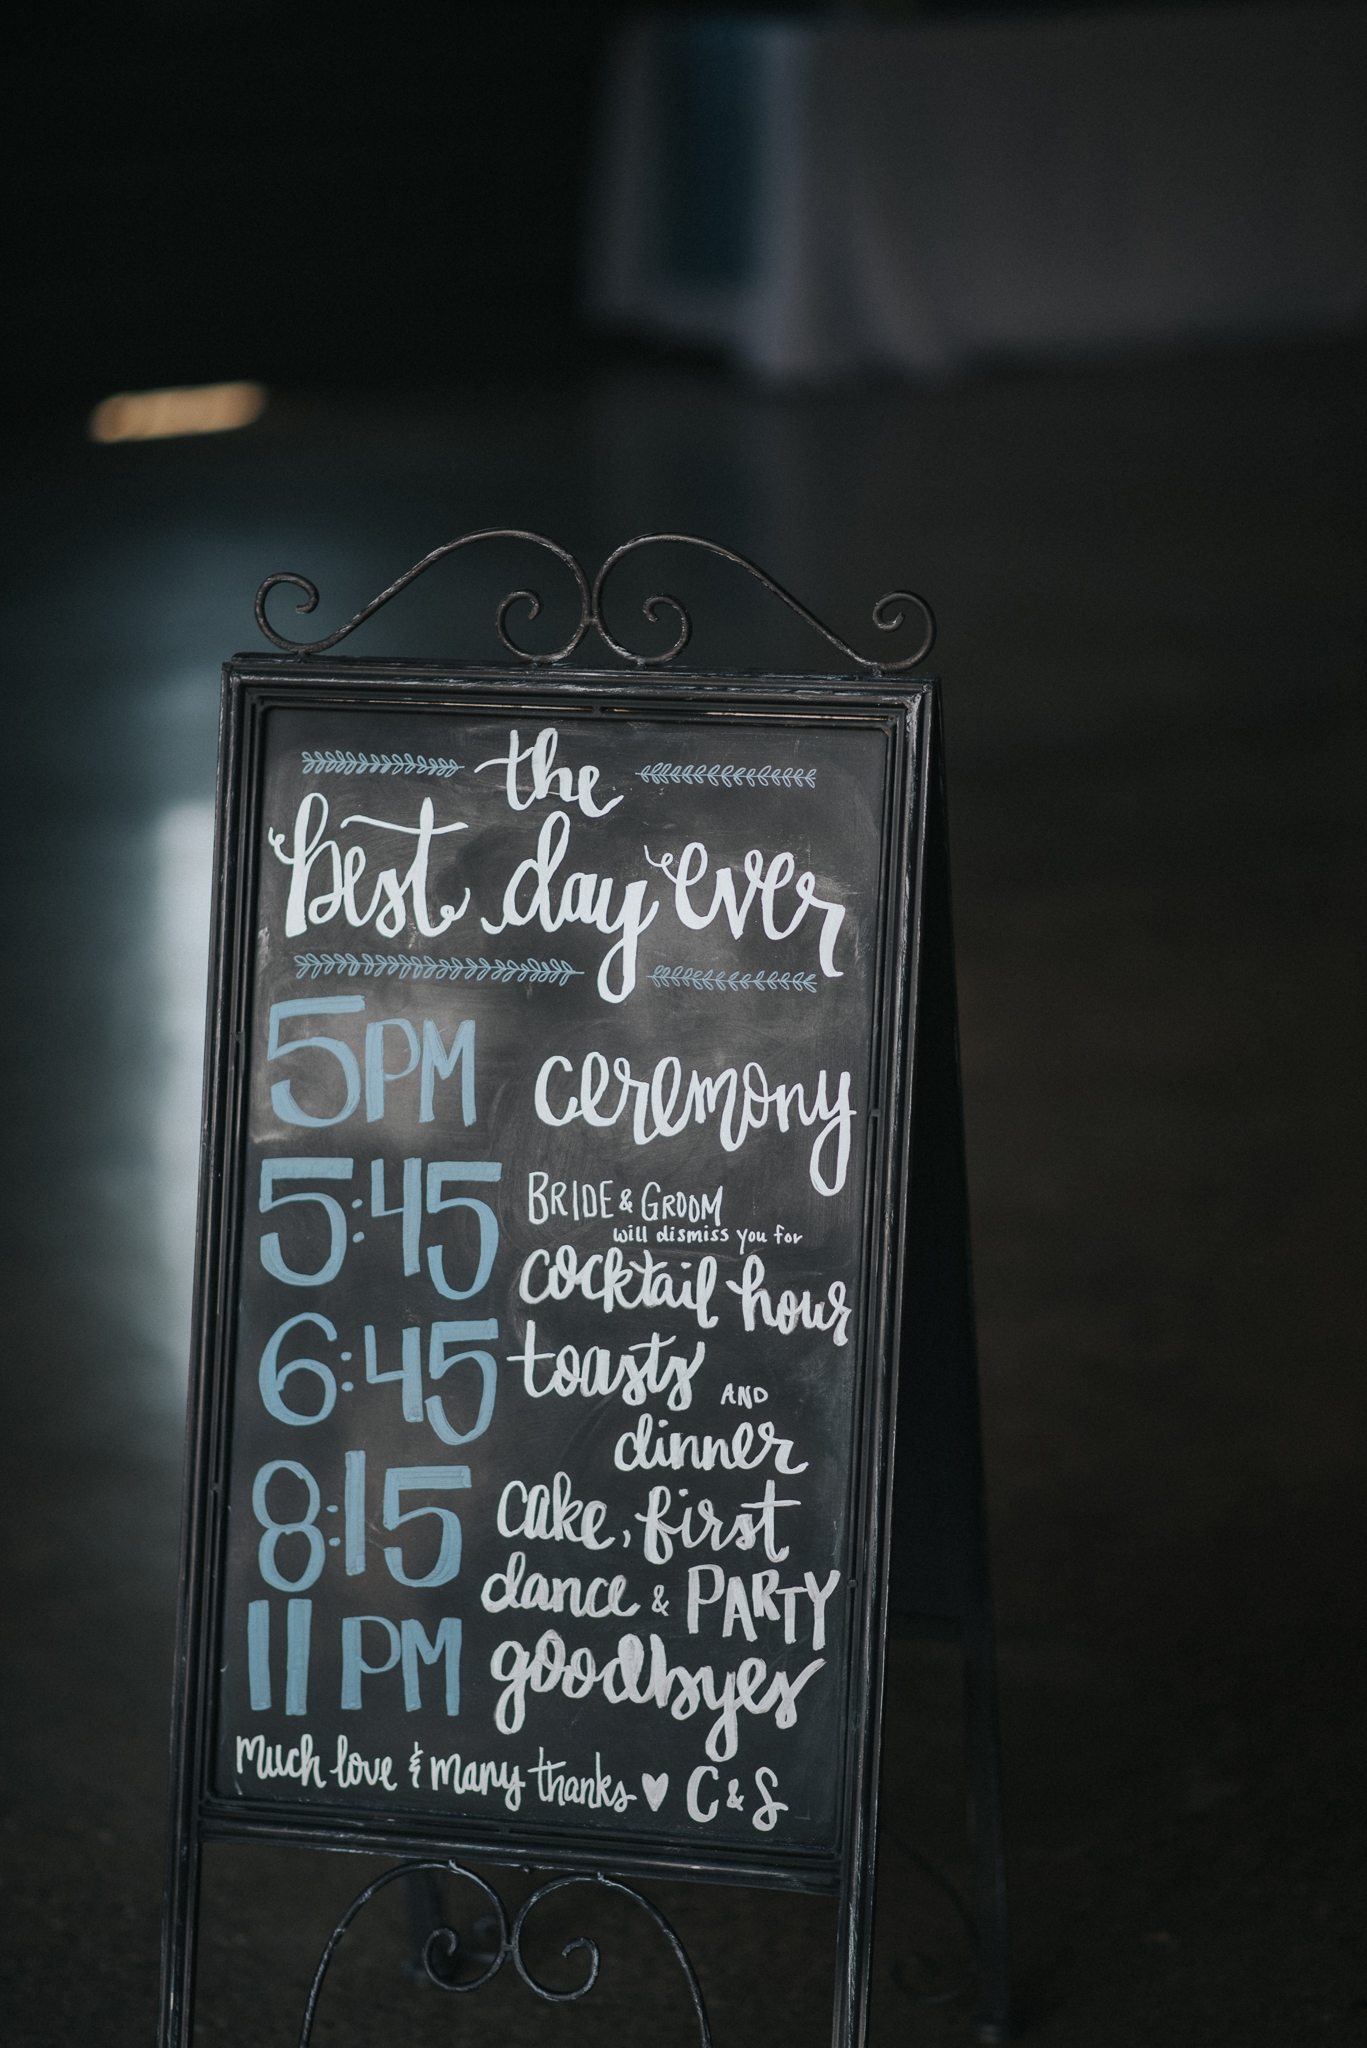 the
best day ever
5PM ceremony
5:45 BRIDE & GROOM
will dismiss you for
cocktail hour
6:45 toasts AND
dinner
8:15 cake, first
dance & PARTY
11 PM goodbyes
Much love & many thanks ♥ C & S